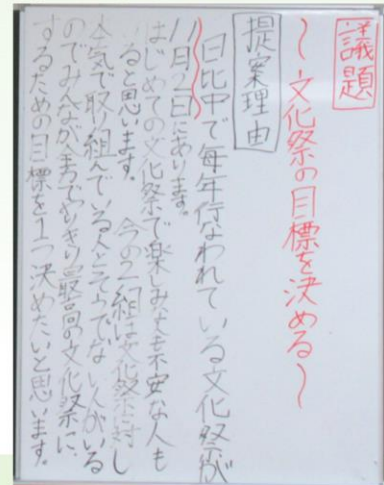 議題
～文化祭の目標を決める～
提案理由
日比中で毎年行なわれている文化祭が
11月2日にあります。
はじめての文化祭で楽しみな人も不安な人も
いると思います。今の2組は文化祭に対し
本気で取り組んでいる人とそうでない人がいる
のでみんなが全力でやりきり最高の文化祭に
するための目標を1つ決めたいと思います。